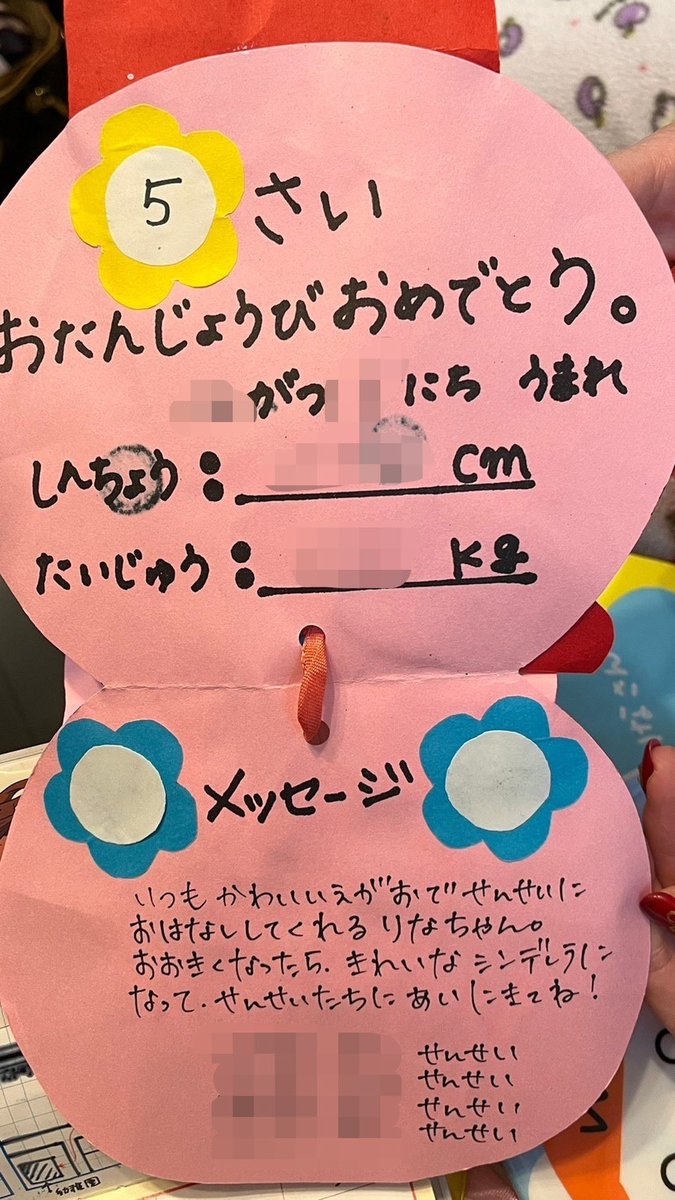 5 さい
おたんじょうびおめでとう。
がつ にち うまれ
しんちょう: cm
たいじゅう: kg
メッセージ
いつも かわいいえがおで せんせいに
おはなししてくれる りなちゃん。
おおきくなったら、きれいな シンデレラに
なって、せんせいたちに あいにきてね!
せんせい
せんせい
せんせい
せんせい